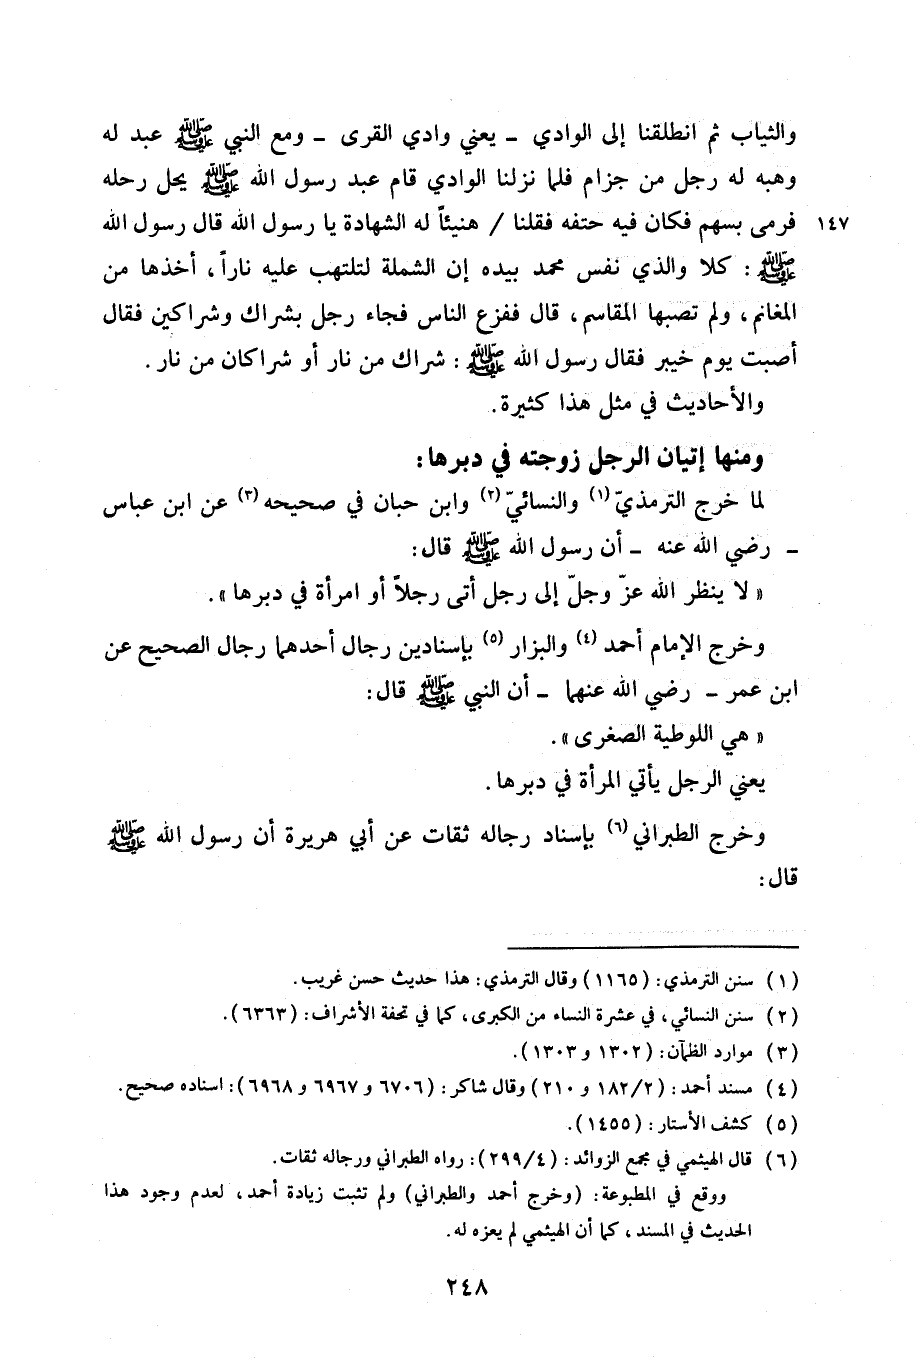 والثياب ثم انطلقنا إلى الوادي - يعني وادي القرى - ومع النبي ﷺ عبد له
وهبه له رجل من جزام فلما نزلنا الوادي قام عبد رسول الله ﷺ يحل رحله
١٤٧ فرمى بسهم فكان فيه حتفه فقلنا / هنيئاً له الشهادة يا رسول الله قال رسول الله
ﷺ : كلا والذي نفس محمد بيده إن الشملة لتلتهب عليه ناراً، أخذها من
المغانم، ولم تصبها المقاسم، قال ففزع الناس فجاء رجل بشراك وشراكين فقال
أصبت يوم خيبر فقال رسول الله ﷺ : شراك من نار أو شراكان من نار .
والأحاديث في مثل هذا كثيرة.
ومنها إتيان الرجل زوجته في دبرها:
لما خرج الترمذيّ (١) والنسائيّ (٢) وابن حبان في صحيحه (٣) عن ابن عباس
- رضي الله عنه - أن رسول الله ﷺ قال:
« لا ينظر الله عزّ وجلّ إلى رجل أتى رجلاً أو امرأة في دبرها».
وخرج الإمام أحمد (٤) والبزار (٥) بإسنادين رجال أحدهما رجال الصحيح عن
ابن عمر - رضي الله عنهما - أن النبي ﷺ قال:
« هي اللوطية الصغرى».
يعني الرجل يأتي المرأة في دبرها.
وخرج الطبراني (٦) بإسناد رجاله ثقات عن أبي هريرة أن رسول الله ﷺ
قال:
(١) سنن الترمذي: (١١٦٥) وقال الترمذي: هذا حديث حسن غريب.
(٢) سنن النسائي، في عشرة النساء من الكبرى، كما في تحفة الأشراف: (٦٣٦٣).
(٣) موارد الظمآن: (١٣٠٢ و ١٣٠٣).
(٤) مسند أحمد: (١٨٢/٢ و ٢١٠) وقال شاكر: (٦٧٠٦ و ٦٩٦٧ و ٦٩٦٨): اسناده صحيح.
(٥) كشف الأستار: (١٤٥٥).
(٦) قال الهيثمي في مجمع الزوائد: (٢٩٩/٤): رواه الطبراني ورجاله ثقات.
ووقع في المطبوعة: (وخرج أحمد والطبراني) ولم تثبت زيادة أحمد، لعدم وجود هذا
الحديث في المسند، كما أن الهيثمي لم يعزه له.
٢٤٨